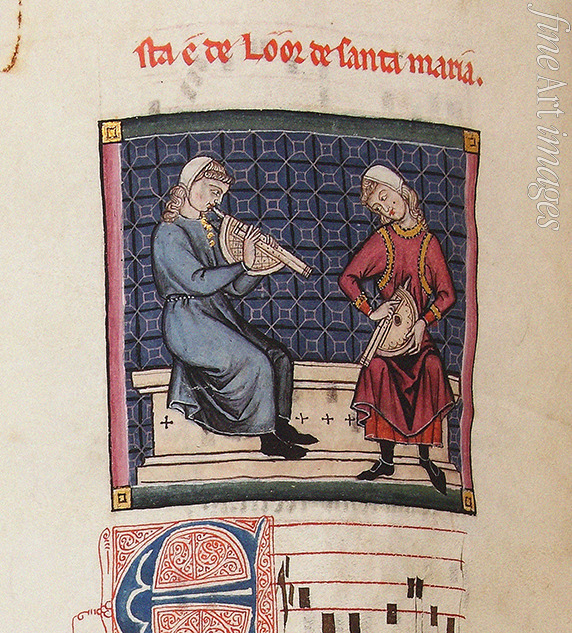 sta ē de Loor de santa maria.
E
fineArtimages